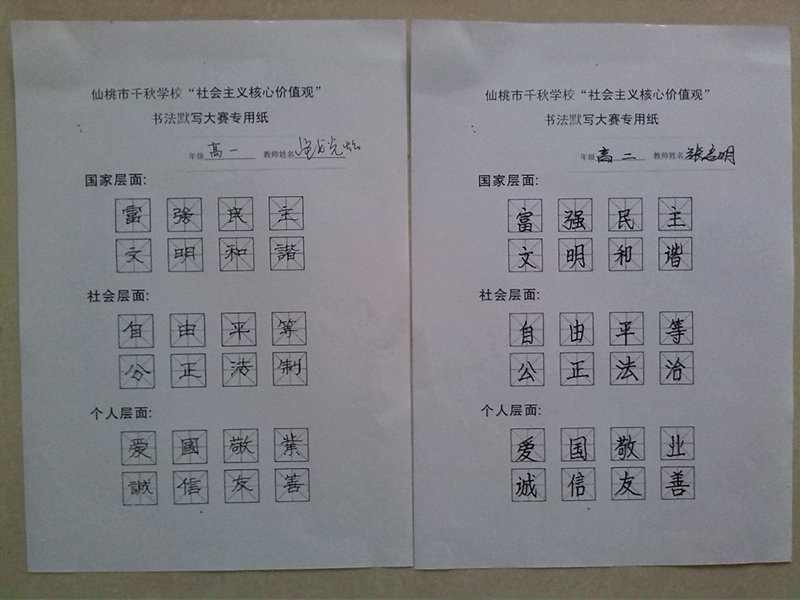 仙桃市千秋学校“社会主义核心价值观”
书法默写大赛专用纸
年级 高一 教师姓名
国家层面:
富 强 民 主
文 明 和 諧
社会层面:
自 由 平 等
公 正 法 制
个人层面:
爱 國 敬 業
誠 信 友 善
仙桃市千秋学校“社会主义核心价值观”
书法默写大赛专用纸
年级 高二 教师姓名 张启明
国家层面:
富 强 民 主
文 明 和 谐
社会层面:
自 由 平 等
公 正 法 治
个人层面:
爱 国 敬 业
诚 信 友 善